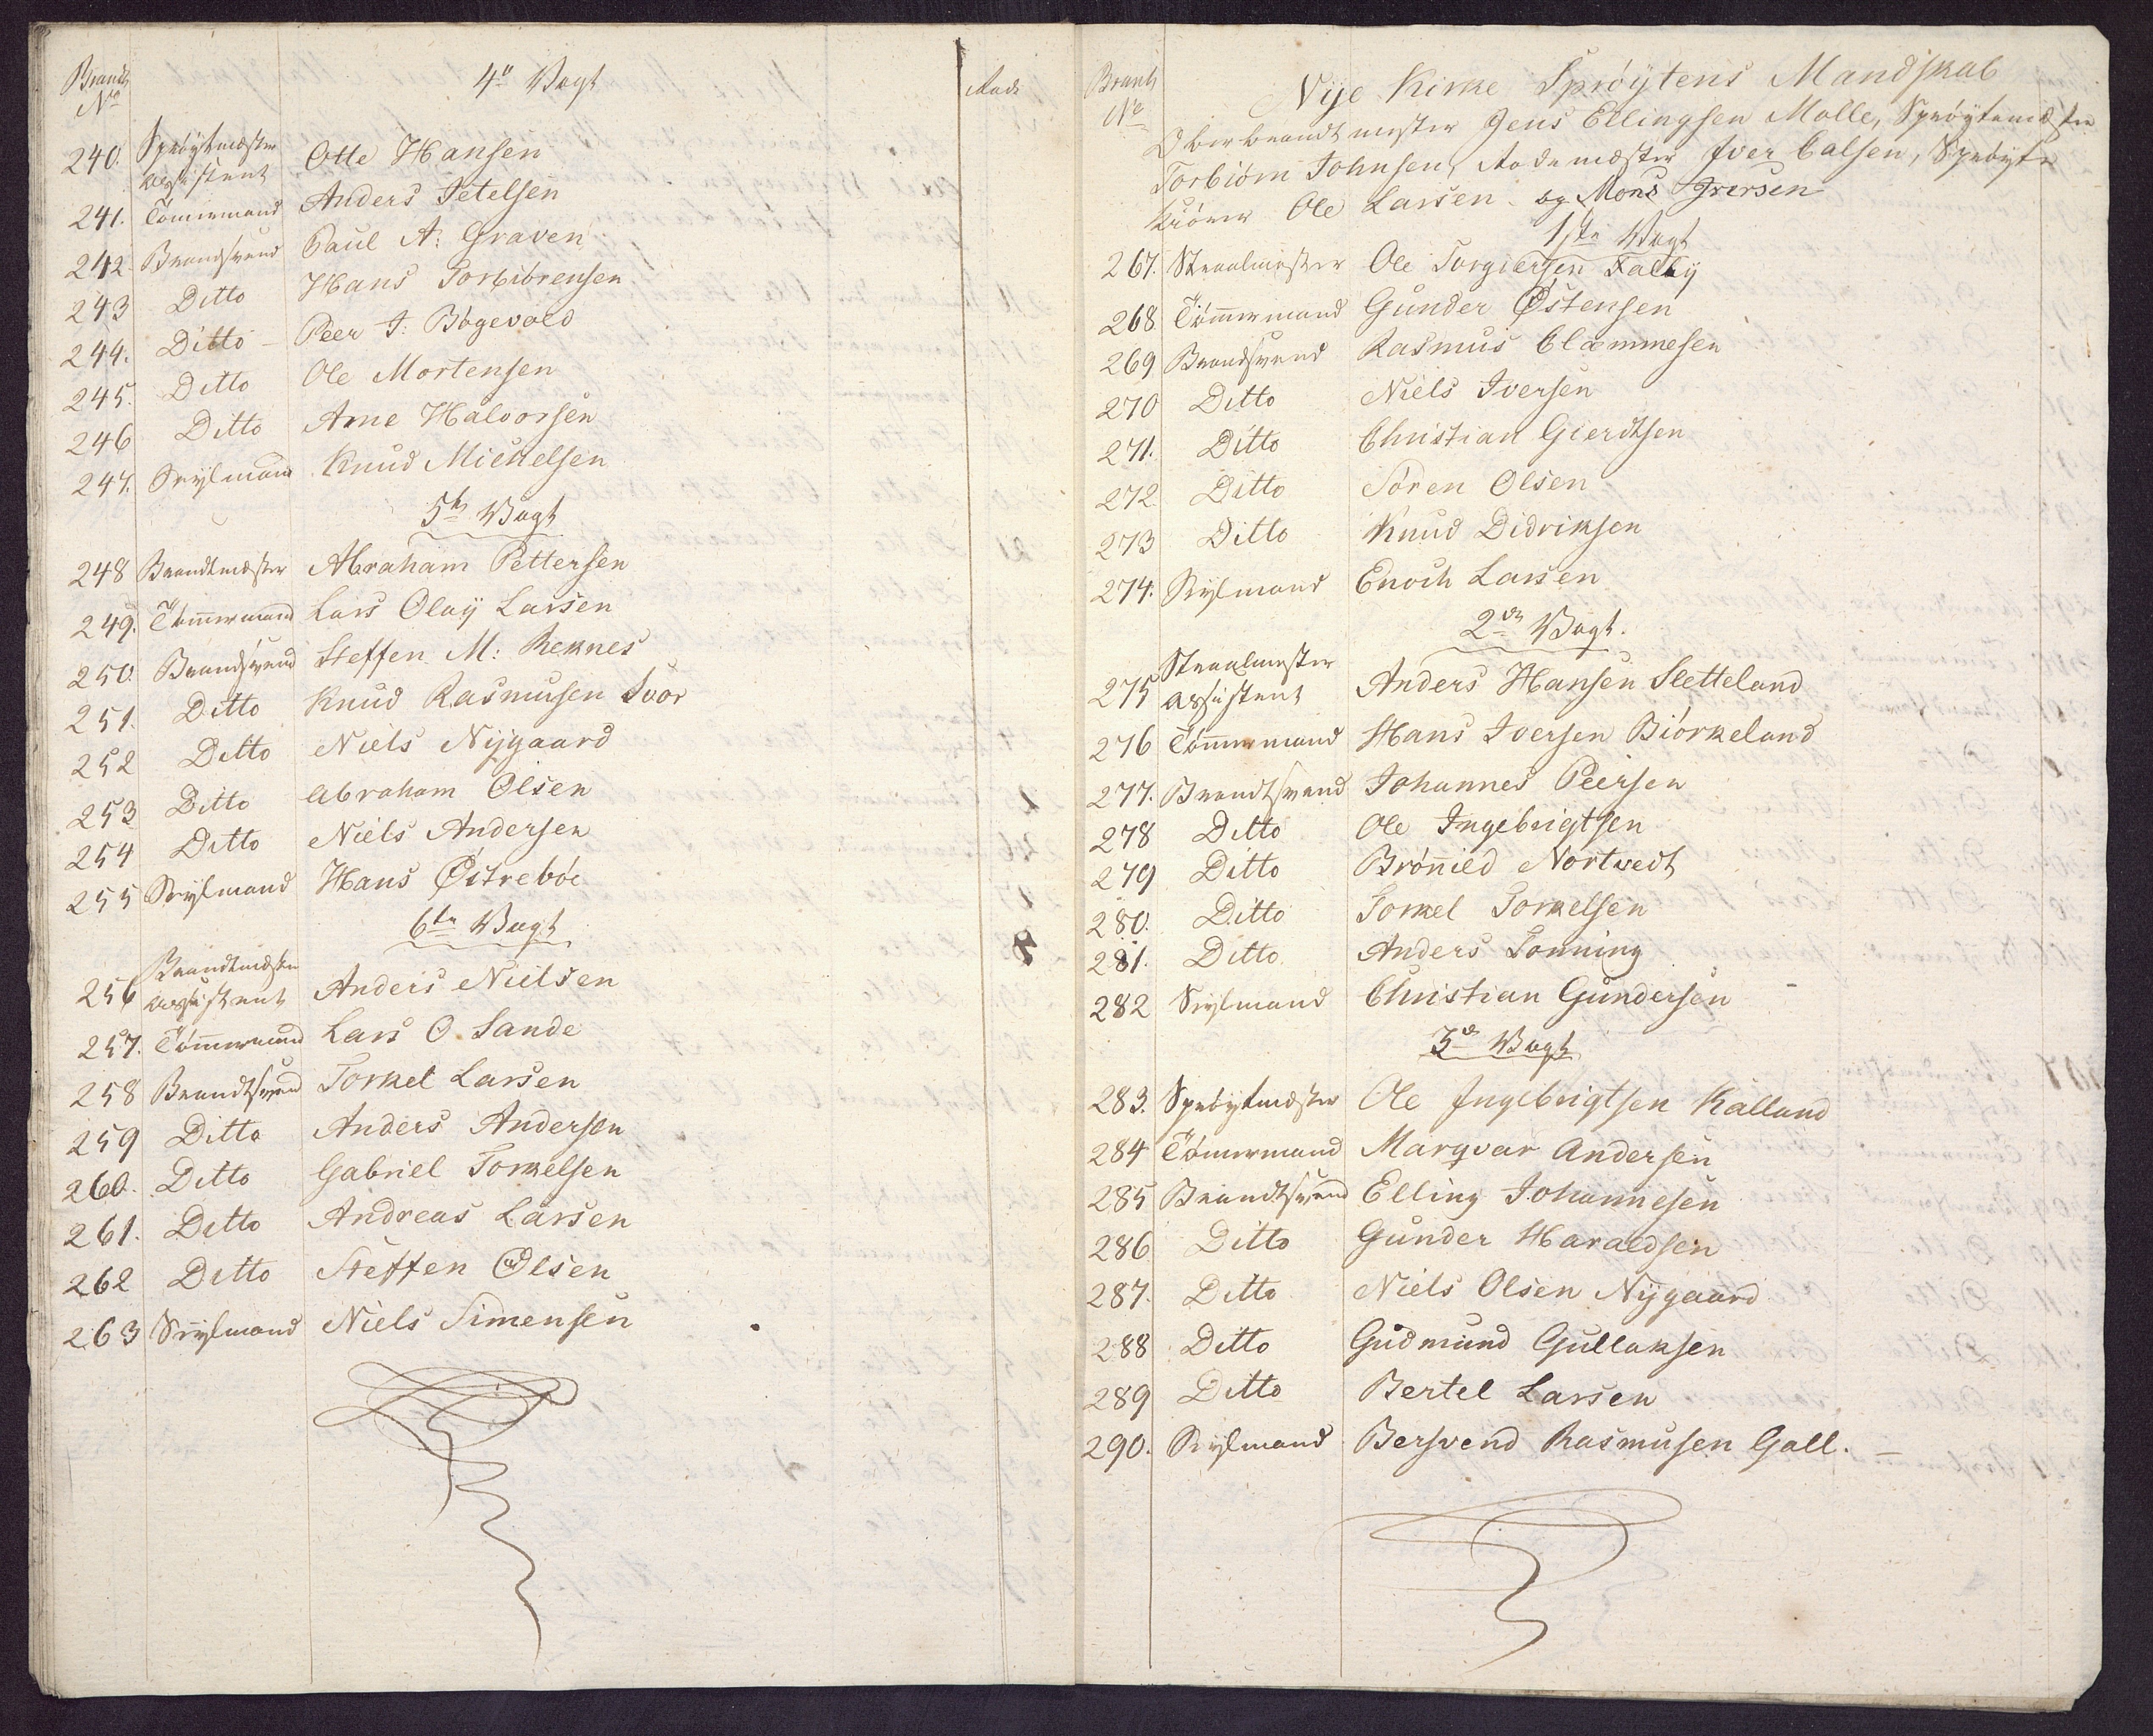 Brandt
No
4de Vagt
Rode
240. Sprøytmester
Assistent Otte Hansen
241. Tømermand Anders Jetelsen
242. Brandsvend Paul A: Graven
243 Ditto Hans Torbiörensen
244. Ditto Peer J: Bögevold
245. Ditto Ole Mortensen
246 Ditto Arne Halvorsen
247. Seylmand Knud Michelsen
5te Vagt
248 Brandtmester Abraham Pettersen
249. Tömmermand Lars Olay Larsen
250. Brandsvend Steffen M: Reknes
251. Ditto Knud Rasmusen Svor
252 Ditto Niels Nÿgaard
253 Ditto Abraham Olsen
254 Ditto Niels Andersen
255 Seylmand Hans Östreböe
6te Vagt
256 Brandtmester
Assistent Anders Nielsen
257. Tömmermand Lars O. Sande
258 Brandtsvend Torkel Larsen
259 Ditto Anders Andersen
260. Ditto Gabriel Torkelsen
261. Ditto Andreas Larsen
262 Ditto Steffen Olsen
263 Seylmand Niels Simensen
Brandt
No
Nÿe Kirke Sprøÿtens Mandskab
Oberbrandtmester Jens Ellingsen Molle, Sprøÿtemester
Torbiörn Johnsen, Rodemester Iver Calsen, Sprøyte
Kiörer Ole Larsen og Mons Iversen
1ste Vagt
267. Straalmester Ole Torgiersen Falbÿ
268 Tömmermand Gunder Östensen
269 Brandsvend Rasmus Clemmesen
270 Ditto Niels Iversen
271. Ditto Christian Gierdtsen
272 Ditto Sören Olsen
273 Ditto Knud Didriksen
274. Seylmand Enoch Larsen
2den Vagt.
275 Straalmester
Assistent Anders Hansen Sletteland
276 Tömmermand Hans Iversen Biörkeland
277. Brandtsvend Johannes Peersen
278 Ditto Ole Ingebrigtsen
279 Ditto Brönild Nortvedt
280. Ditto Torkel Torkelsen
281. Ditto Anders Tonning
282 Seylmand Christian Gundersen
3de Vagt
283. Sprøytmester Ole Ingebrigtsen Kalland
284 Tömermand Marqvar Andersen
285 Brandtsvend Elling Johannesen
286 Ditto Gunder Haraldsen
287. Ditto Niels Olsen Nÿgaard
288 Ditto Gudmund Gullaksen
289 Ditto Bertel Larsen
290. Seylmand Bersvend Rasmusen Gall.